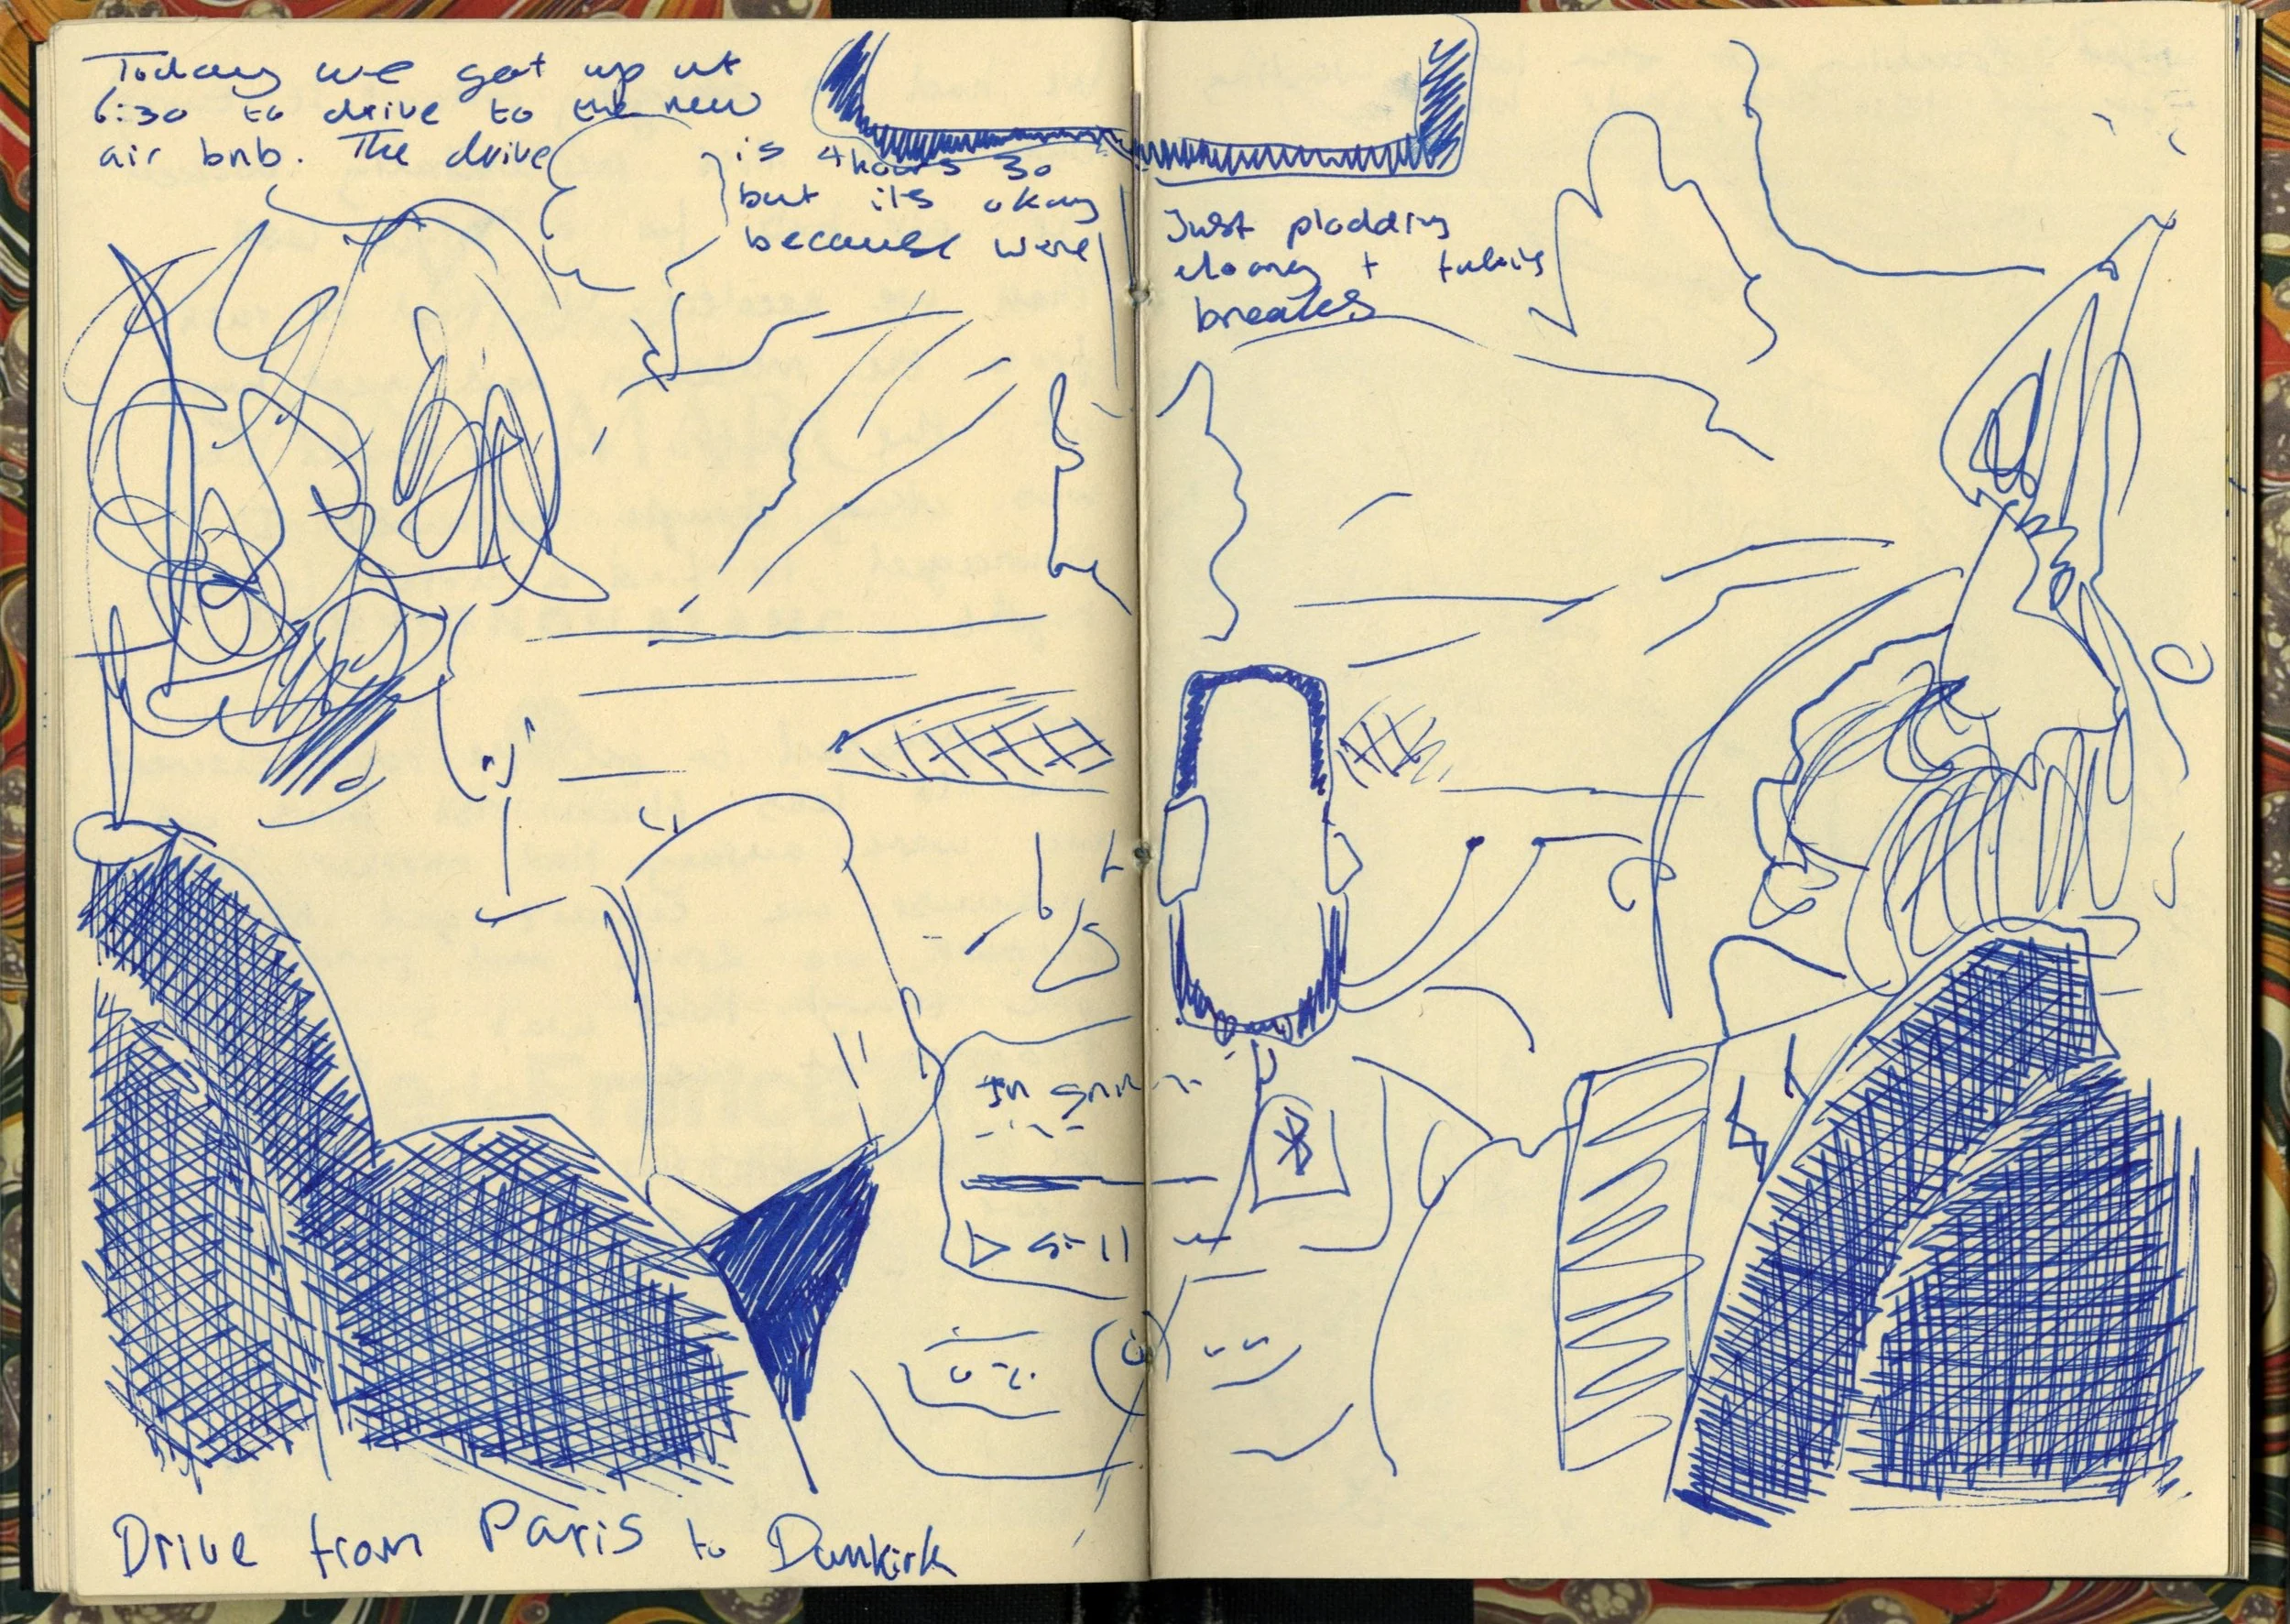 Today we got up at
6:30 to drive to the new
air bnb. The drive
is 4 hours 30
but its okay
because were
Just plodding
along + taking
breaks
Drive from Paris to Dunkirk